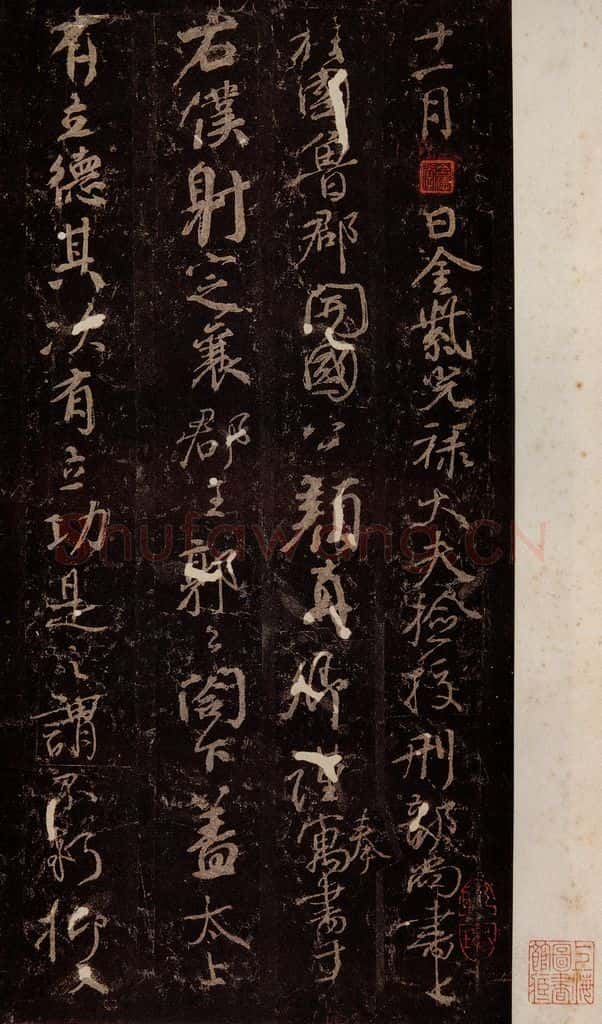 十一月日金紫光祿大夫檢挍刑部尚書上
柱國魯郡開國公顏真卿謹奉寓書于
右僕射定襄郡王郭公閤下蓋太上
有立德其次有立功是之謂不朽抑又
Shufawang.CN